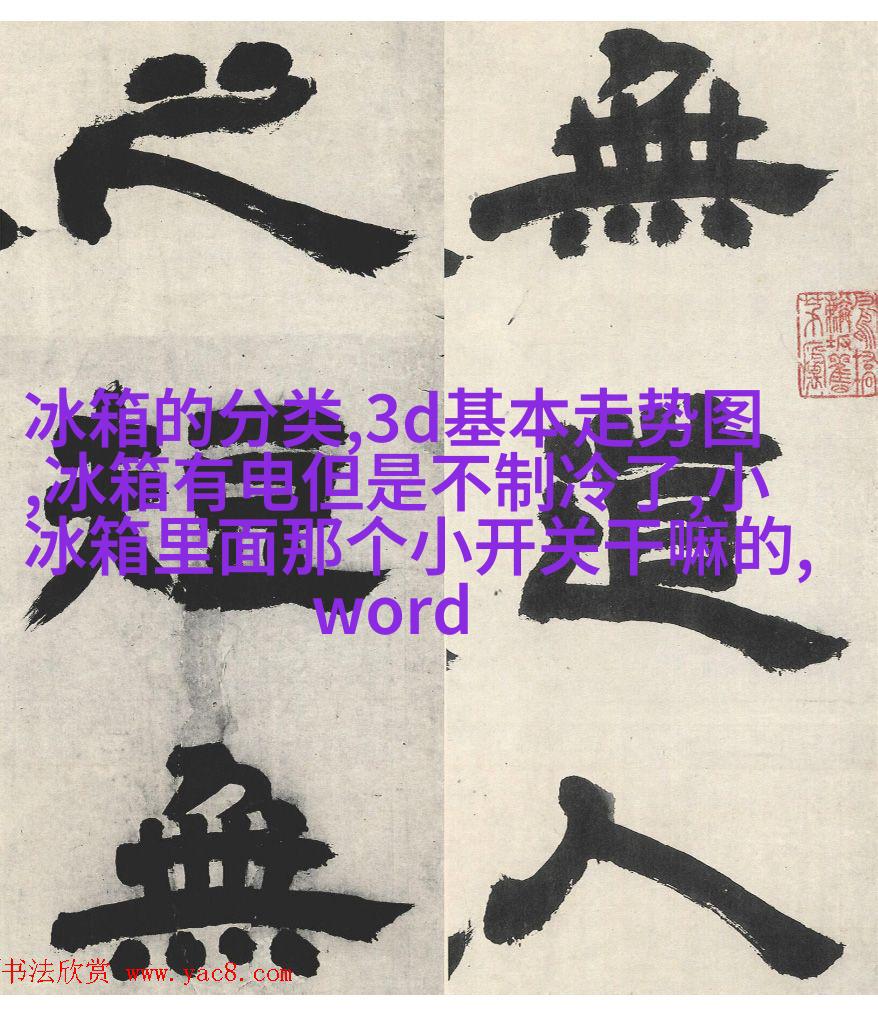 無道人
之短無
冰箱的分类,3d基本走势图
,冰箱有电但是不制冷了,小
冰箱里面那个小开关干嘛的,
word
书法欣赏 www.yac8.com